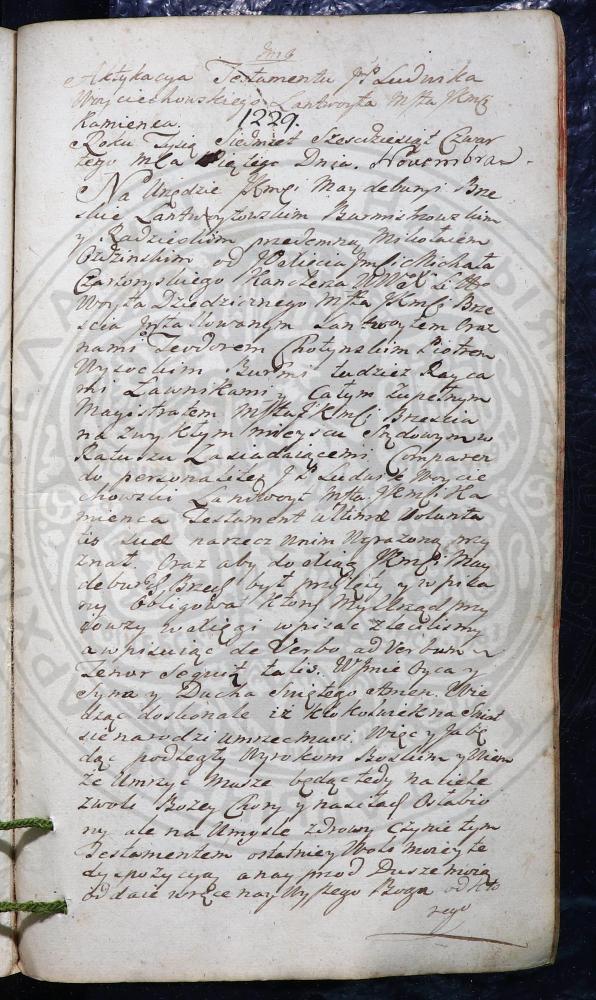 Aktykacya Testamentu JP Ludwika
Woyciechowskiego Lantwoyta Msta JKmsci
Kamienca. 1229.
Roku Tysiąc Siedmset Szescdziesiąt Czwar
tego Mca Dnia. Novembra
Na Urzędzie JKmsci Maydeburyi Brze
skie Lantwoytowskim Burmistrzowskim
y Radzieckim przedemną Mikołaiem
od Xcia Jmsci Michała
Czartoryskiego Kanclerza WWoXLitto
Woyta Dziedzicznego Msta JKmsci Brze
scia Installowanym Lantwoytem oraz
nami Teodorem Chotynskim Piotrem
Wysockim Burmi tudziez Raycа
mi Ławnikami y całym zupełnym
Magistratem Msta JKmsci Brzescia
na zwykłym mieyscu Sądowym w
Ratuszu Zasiadaiącemi Comparen
do personaliter JP Ludwik Woycie
chowski Landwoyt Msta JKmsci Ka
mienca Testament ultimæ Volunta
tis suæ narzecz w nim wyrazoną przy
znał. Oraz aby do xiąg JKmsci May
debur Brzes był przyięty y wpisa
ny obligował Ktory My Urząd przy
iowszy w xięgi wpisac zlecilismy
a wpisuiąc de Verbo ad Verbum
Tenor Sequit talis. W Jmie Oyca y
Syna y Ducha Swiętego Amen. Wie
dząc doskonale iz ktokolwiek na Swiat
sie narodzi umrzec musi Więc y Ja bę
dąc podległy Wyrokom Boskim y Wiem
że Umrzyc Musze będąc tedy na ciele
z woli Bozey Chory y na siłach Osłabio
ny ale na Umysle zdrowy czynie tym
Testamentem ostatniey Woli moiey te
dyspozycyą a nayprzod Dusze moią
oddaie w ręce nay Wyszego Boga od kto
rego